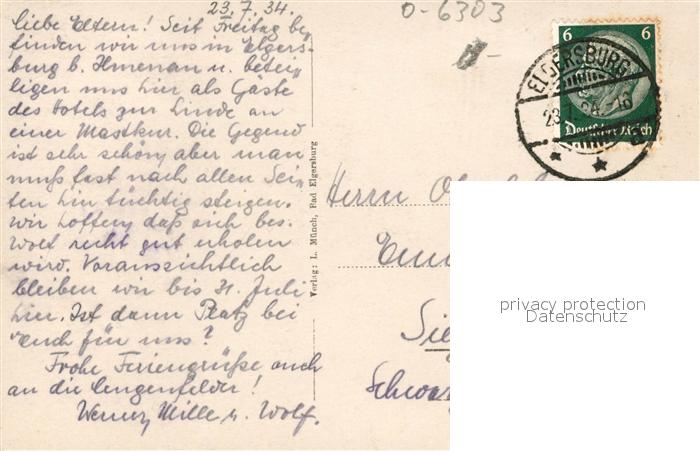 23.7.34.
Liebe Eltern! Seit Freitag be-
finden wir uns in Elgers-
burg b. Ilmenau u. betei-
ligen uns hier als Gäste
des Hotels zur Linde an
einer Mastkur. Die Gegend
ist sehr schön, aber man
muß fast nach allen Sei-
ten hin tüchtig steigen.
Wir hoffen, daß sich bes.
Wolf recht gut erholen
wird. Voraussichtlich
bleiben wir bis 31. Juli
hier. Ist dann Platz bei
euch für uns?
Frohe Feriengrüße auch
an die Lengenfelder!
Werner, Mille u. Wolf.
Verlag: L. Münch, Bad Elgersburg
0-6303
6 6
Deutsches Reich
ELGERSBURG
23
Herrn
privacy protection
Datenschutz